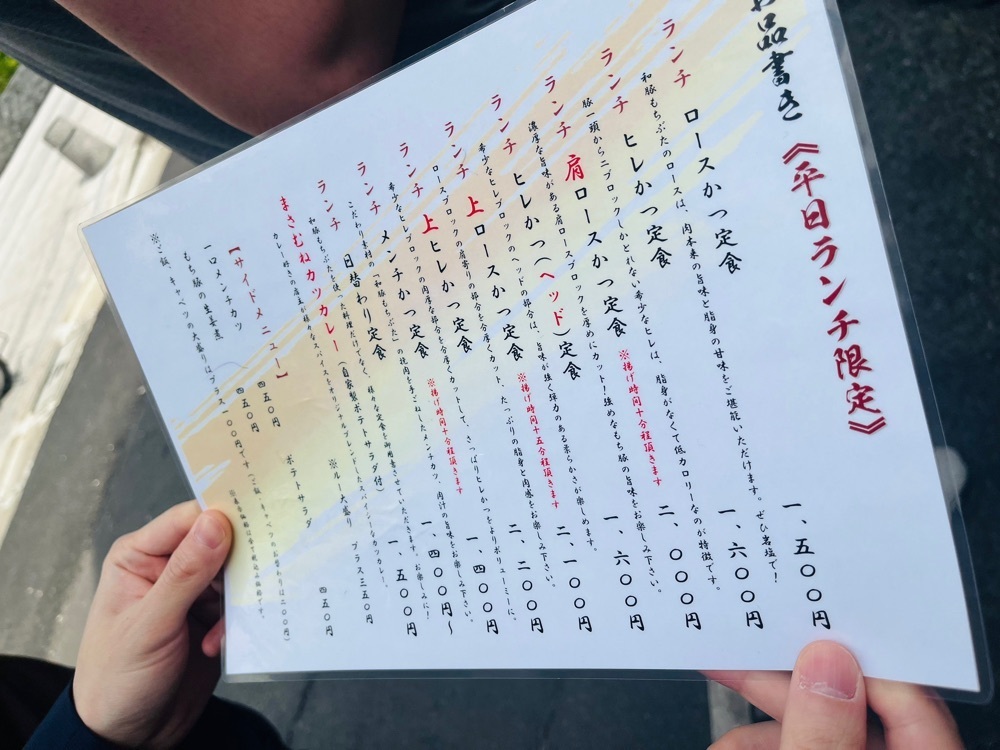 お品書き 《平日ランチ限定》
ランチ ロースかつ定食 一、五〇〇円
和豚もちぶたのロースは、肉本来の旨味と脂身の甘味をご堪能いただけます。ぜひ岩塩で!
ランチ ヒレかつ定食 一、六〇〇円
豚一頭から二ブロックしかとれない希少なヒレは、脂身がなくて低カロリーなのが特徴です。
ランチ 肩ロースかつ定食 ※揚げ時間十分程頂きます 二、〇〇〇円
濃厚な旨味がある肩ロースブロックを厚めにカット!強めなもち豚の旨味をお楽しみ下さい。
ランチ ヒレかつ(ヘッド)定食 一、六〇〇円
希少なヒレブロックのヘッドの部分は、旨味が強く弾力のある柔らかさが楽しめます。
ランチ 上ロースかつ定食 ※揚げ時間十五分程頂きます 二、一〇〇円
ロースブロックの肩寄りの部分を分厚くカット、たっぷりの脂身と肉感をお楽しみ下さい。
ランチ 上ヒレかつ定食 ※揚げ時間十分程頂きます 二、二〇〇円
希少なヒレブロックの肉厚な部分を分厚くカットして、さっぱりヒレかつをよりボリューミーに。
ランチ メンチかつ定食 一、四〇〇円
こだわり素材の「和豚もちぶた」の挽肉を手ごねしたメンチカツ、肉汁の旨味をお楽しみ下さい。
ランチ 日替わり定食 一、四〇〇円〜
和豚もちぶたを使った料理だけでなく、様々な定食を御用意させていただきます。お楽しみに!
まさむねカツカレー (自家製ポテトサラダ付) 一、五〇〇円
カレー好きの店主が様々なスパイスをオリジナルブレンドしたスパイシーなカツカレー。
※ルー大盛り プラス三五〇円
【サイドメニュー】
一口メンチカツ 四五〇円 ポテトサラダ 四五〇円
もち豚の生姜煮 四五〇円
※ご飯、キャベツの大盛りはプラス一〇〇円です(ご飯、キャベツのお替わりは二〇〇円)